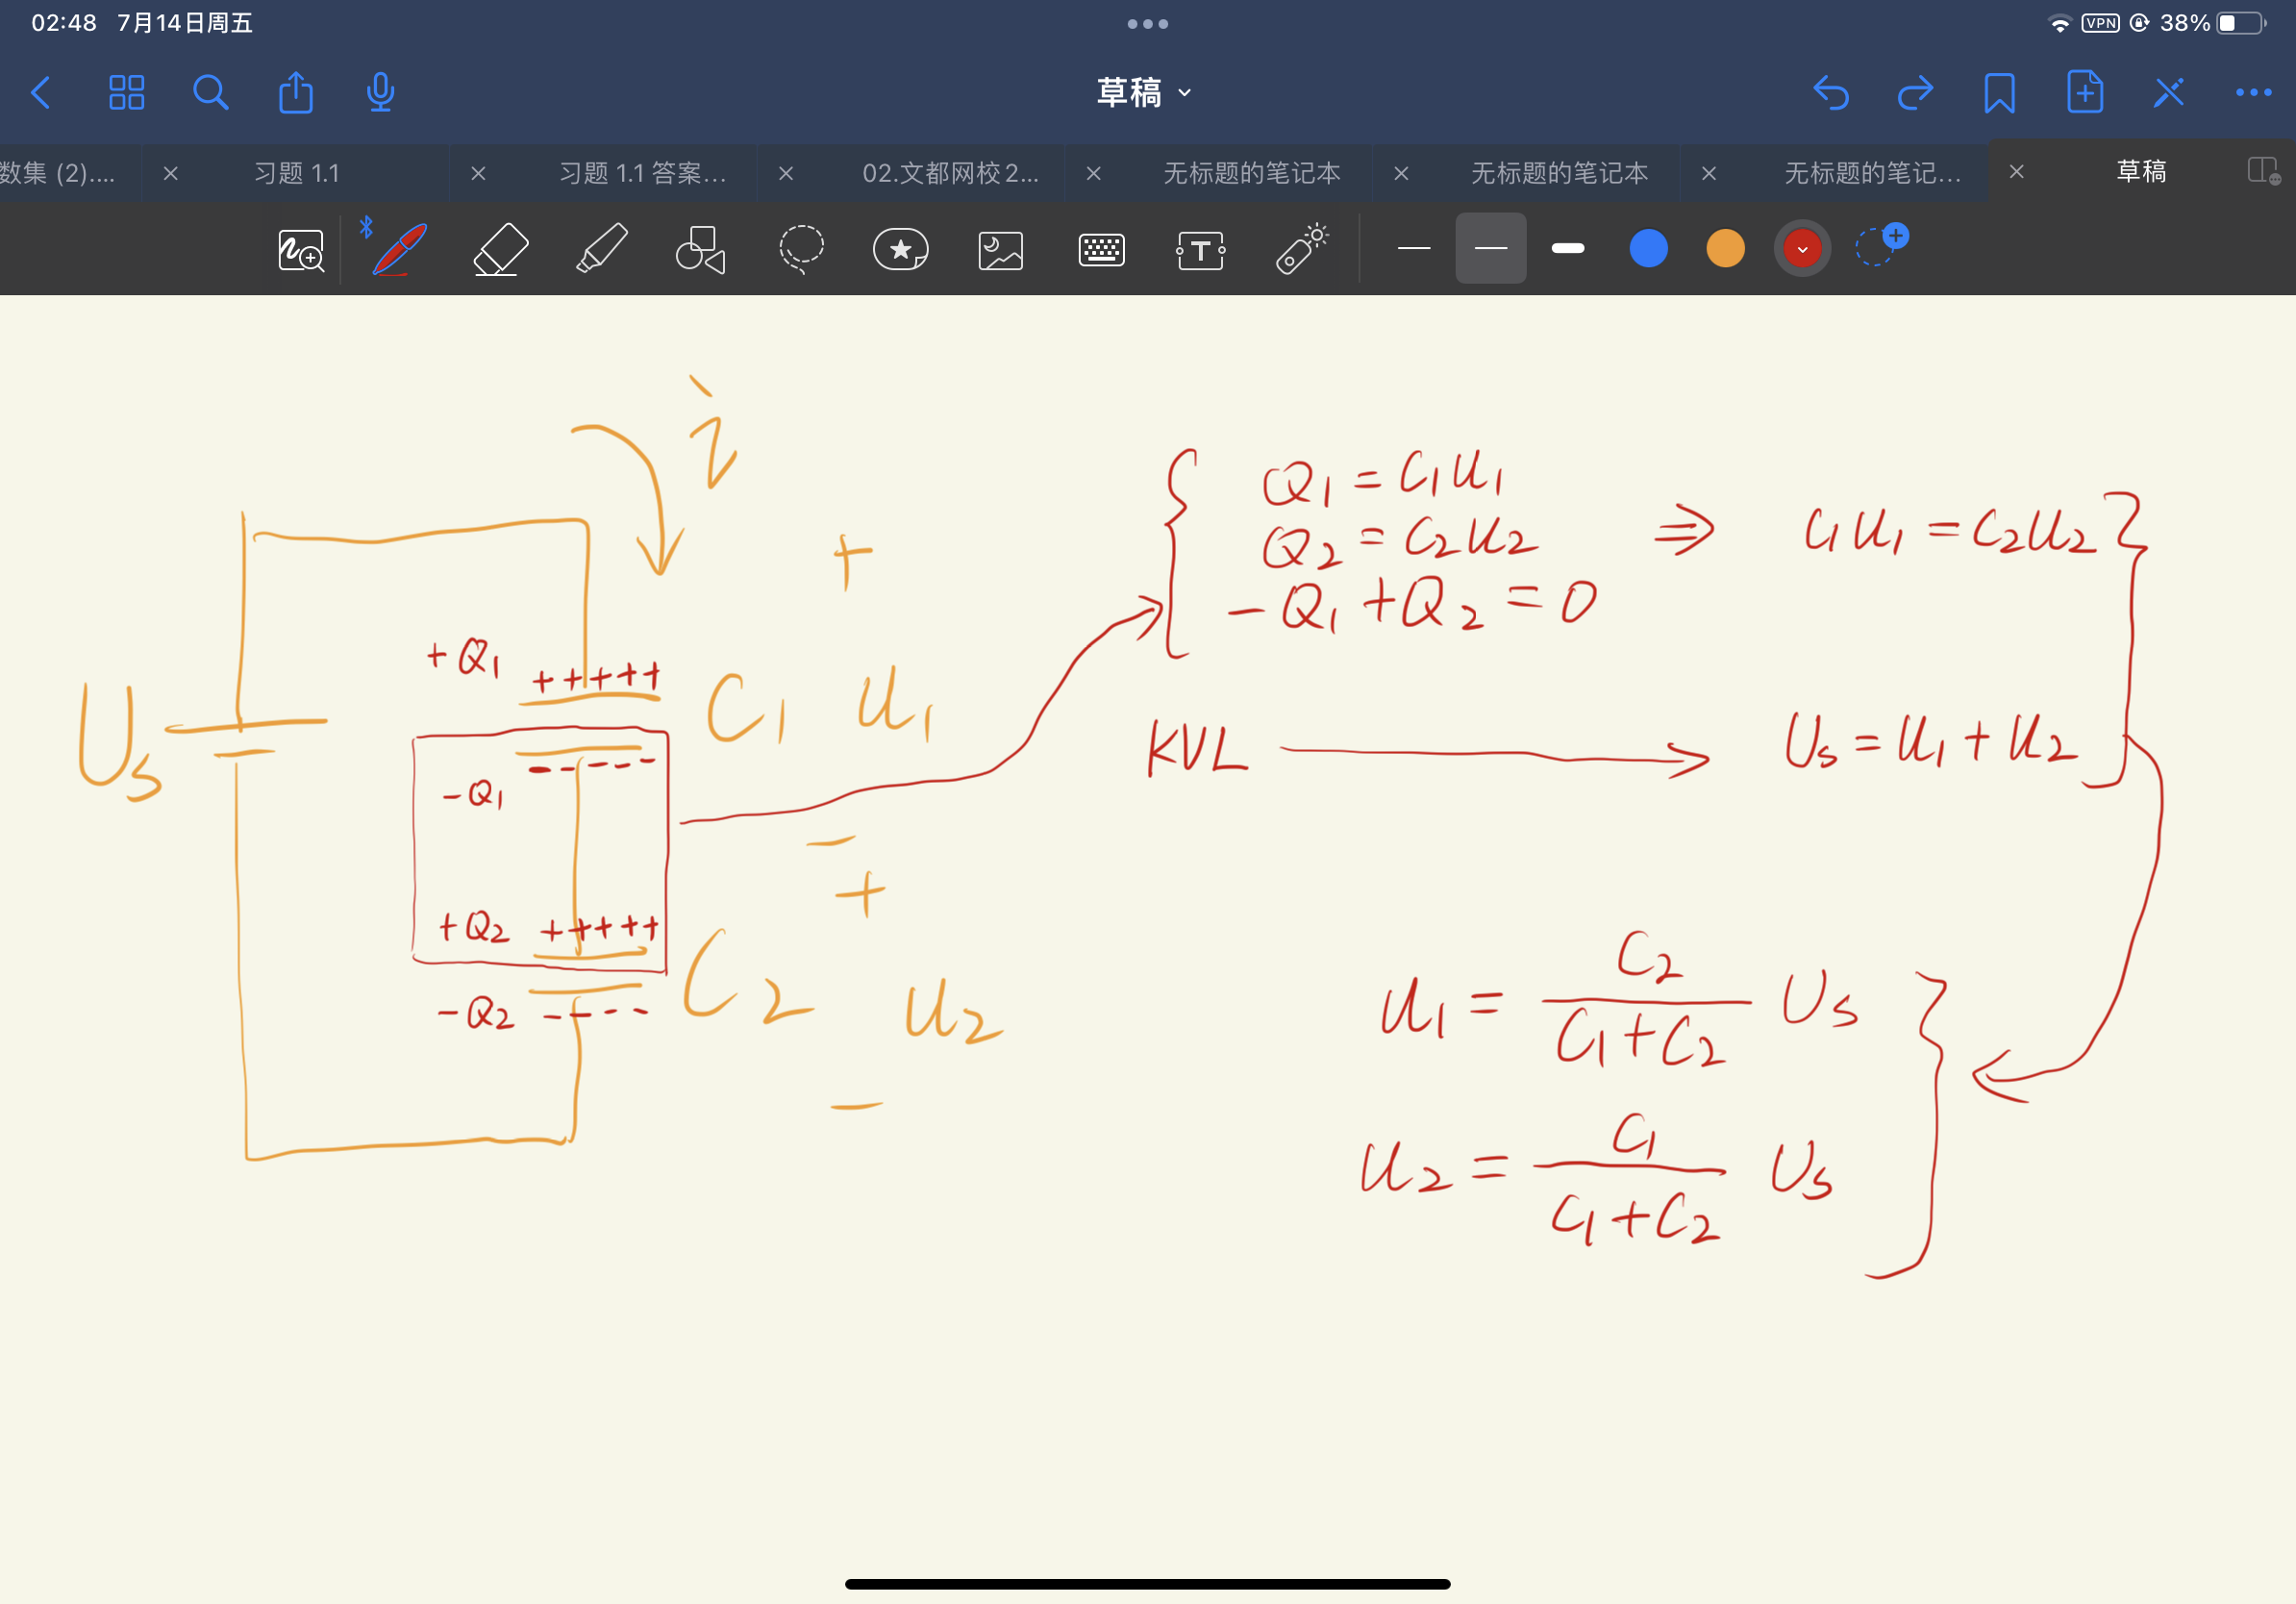 02:48 7月14日周五
VPN 38%
草稿
数集 (2)....
习题 1.1
习题 1.1 答案...
02.文都网校2...
无标题的笔记本
无标题的笔记本
无标题的笔记...
草稿
T
i
+
Us
+Q₁ +++++
C₁ u₁
-Q₁ -----
-
+
+Q₂ +++++
C₂ u₂
-Q₂ ----
-
Q₁ = C₁u₁
Q₂ = C₂u₂ ⇒ C₁u₁ = C₂u₂
-Q₁ + Q₂ = 0
KVL → Us = u₁ + u₂
u₁ = C₂/(C₁+C₂) Us
u₂ = C₁/(C₁+C₂) Us